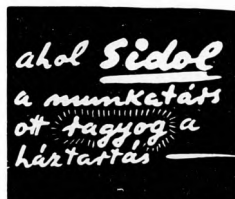 ahol Sidol
a munkatárs
ott ragyog a
háztartás